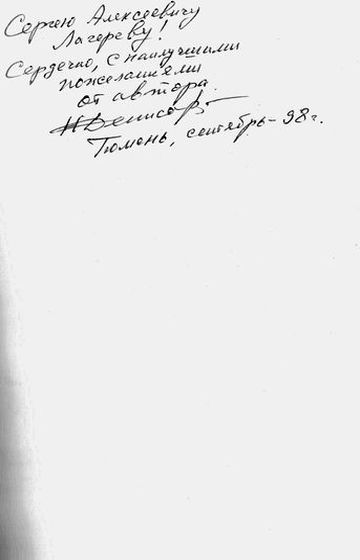 Сергею Алексеевичу
Лагереву!
Сердечно, с наилучшими
пожеланиями
от автора.
НДенисов
Тюмень, сентябрь-98г.